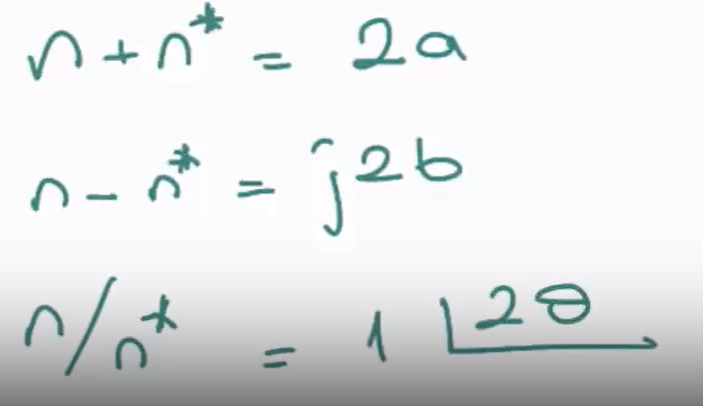 n + n* = 2a
n - n* = j2b
n/n* = 1∠2θ